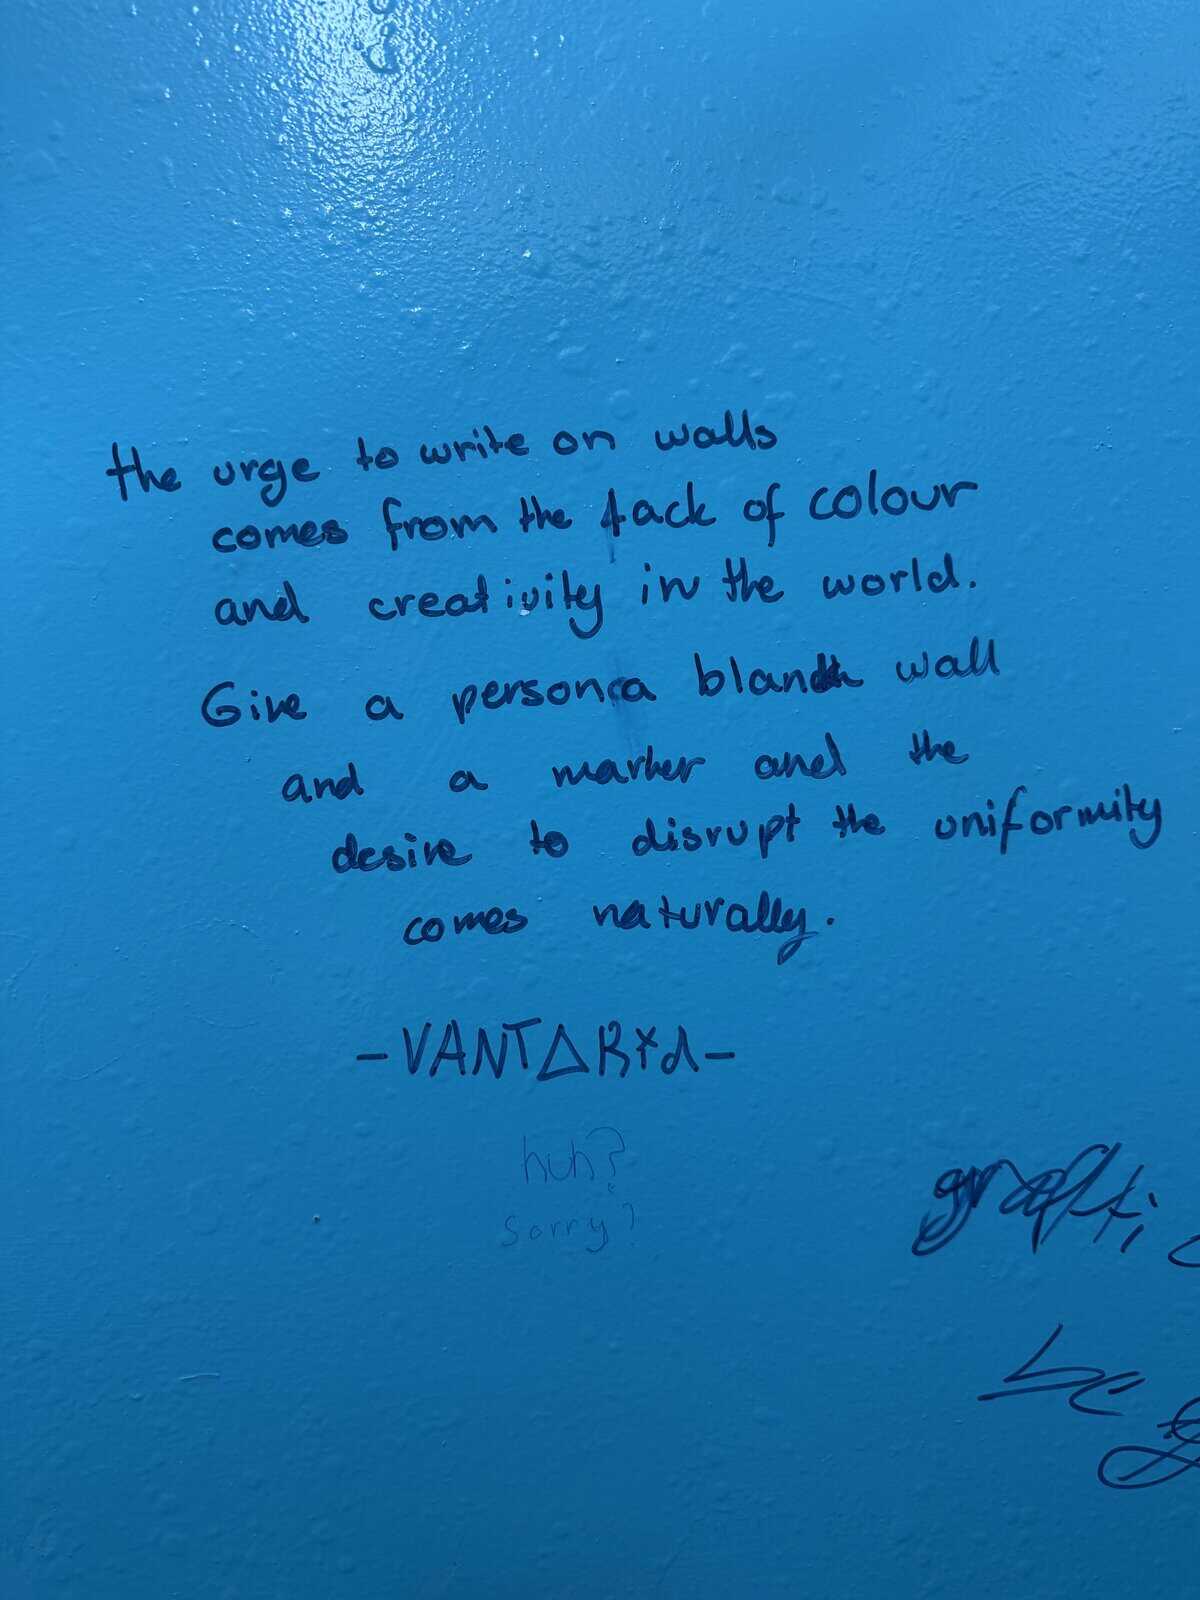 the urge to write on walls
comes from the lack of colour
and creativity in the world.
Give a person a blank wall
and a marker and the
desire to disrupt the uniformity
comes naturally.
-VANTΔRid-
huh?
sorry?
grafiti
be